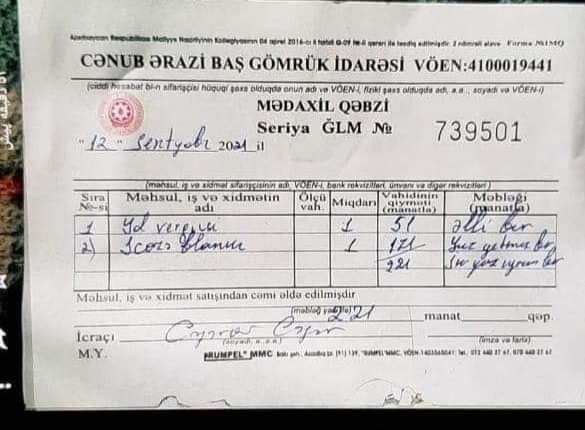 Azərbaycan Respublikası Maliyyə Nazirliyinin Kollegiyasının 04 aprel 2016-cı il tarixli Q-09 №-li qərarı ilə təsdiq edilmişdir. 2 nömrəli əlavə Forma №1MQ
CƏNUB ƏRAZİ BAŞ GÖMRÜK İDARƏSİ VÖEN:4100019441
(ciddi hesabat bl-n sifarişçisi hüquqi şəxs olduqda onun adı və VÖEN-i, fiziki şəxs olduqda adı, a.a., soyadı və VÖEN-i)
MƏDAXİL QƏBZİ
Seriya ĞLM № 739501
"12" Sentyabr 2021 il
(məhsul, iş və xidmət sifarişçisinin adı, VÖEN-i, bank rekvizitləri, ünvanı və digər rekvizitləri)
Sıra №-si Məhsul, iş və xidmətin adı Ölçü vah. Miqdarı Vahidinin qiyməti (manatla) Məbləği (manatla)
1 Yol vergisi 1 51 əlli bir
2) 1 171 Yüz yetmiş bir
221
Məhsul, iş və xidmət satışından cəmi əldə edilmişdir
(məbləğ yazı ilə) 221 manat qəp.
İcraçı
(soyadı, a.a.a.) (imza və tarix)
M.Y. "RUMPEL" MMC